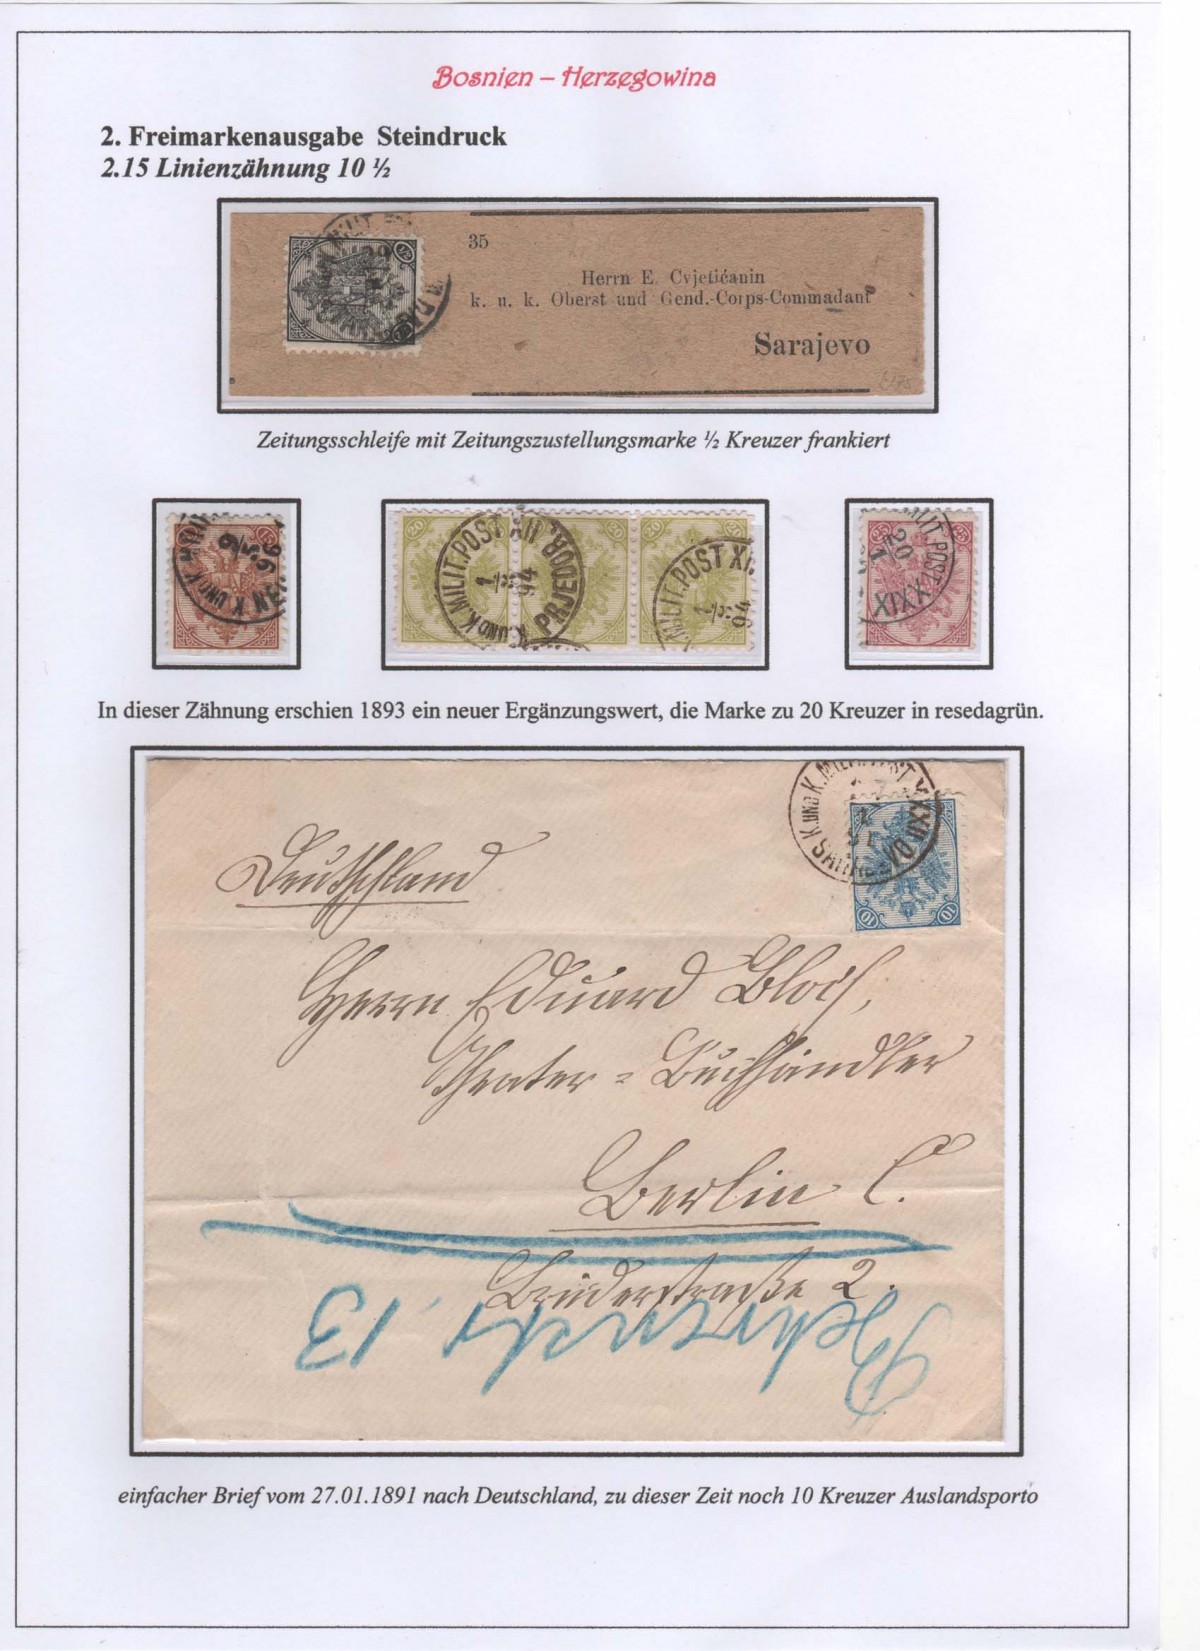 Bosnien – Herzegowina
2. Freimarkenausgabe Steindruck
2.15 Linienzähnung 10 ½
35
Herrn E. Cvjetićanin
k. u. k. Oberst und Gend.-Corps-Commadant
Sarajevo
Zeitungsschleife mit Zeitungszustellungsmarke ½ Kreuzer frankiert
15
20 20 20
K. UND K. MILIT. POST XII
1 94
PRJEDOR
MILIT. POST XI
1 94
25
MILIT. POST
20
1
XIX
In dieser Zähnung erschien 1893 ein neuer Ergänzungswert, die Marke zu 20 Kreuzer in resedagrün.
K. UND K. MILIT. POST
SARAJEVO
10 10
Deutschland
Herrn Eduard Bloch,
Theater = Buchhändler
Berlin C.
Brüderstraße 2.
13
einfacher Brief vom 27.01.1891 nach Deutschland, zu dieser Zeit noch 10 Kreuzer Auslandsporto